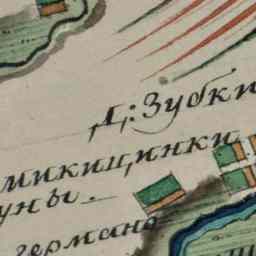 Д: Зубки
микицинки
уны.
германо